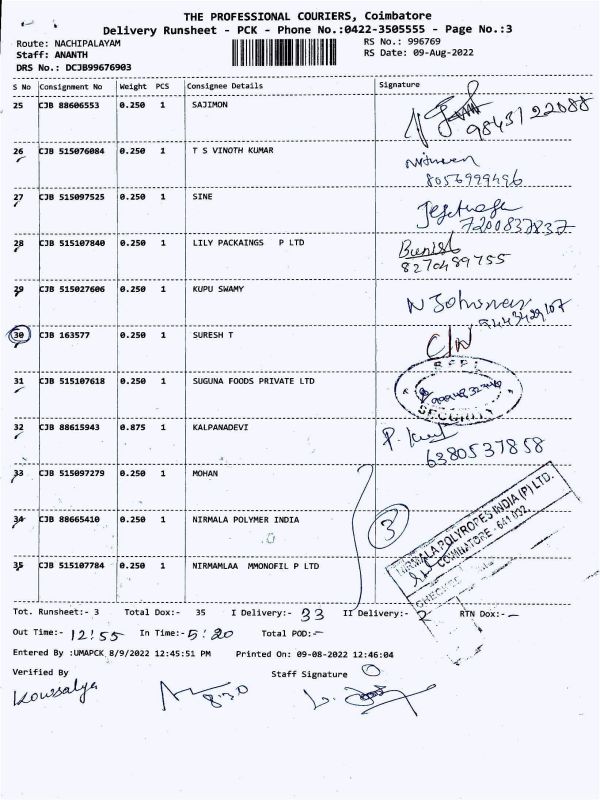 THE PROFESSIONAL COURIERS, Coimbatore
Delivery Runsheet - PCK - Phone No.:0422-3505555 - Page No.:3
Route: NACHIPALAYAM RS No.: 996769
Staff: ANANTH RS Date: 09-Aug-2022
DRS No.: DCJB99676903
S No Consignment No Weight PCS Consignee Details Signature
25 CJB 88606553 0.250 1 SAJIMON
9843122088
26 CJB 515076084 0.250 1 T S VINOTH KUMAR
8056999496
27 CJB 515097525 0.250 1 SINE
7200837837
28 CJB 515107840 0.250 1 LILY PACKAINGS P LTD
8270489755
29 CJB 515027606 0.250 1 KUPU SWAMY N Johnson
9443429107
30 CJB 163577 0.250 1 SURESH T C/N
31 CJB 515107618 0.250 1 SUGUNA FOODS PRIVATE LTD
SECURITY
32 CJB 88615943 0.875 1 KALPANADEVI
6380537858
33 CJB 515097279 0.250 1 MOHAN
34 CJB 88665410 0.250 1 NIRMALA POLYMER INDIA 3
NIRMALA POLYROPES INDIA (P) LTD.
COIMBATORE - 641 032.
CHECKED
35 CJB 515107784 0.250 1 NIRMAMLAA MMONOFIL P LTD
Tot. Runsheet:- 3 Total Dox:- 35 I Delivery:- 33 II Delivery:- 2 RTN Dox:- -
Out Time:- 12:55 In Time:- 5:20 Total POD:- -
Entered By :UMAPCK 8/9/2022 12:45:51 PM Printed On: 09-08-2022 12:46:04
Verified By Staff Signature
Kowsalya 8:30